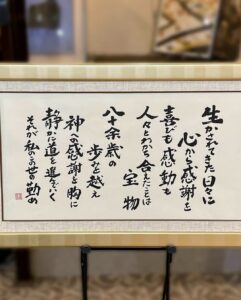 生かされてきた日々に
心から感謝を
喜びも感動も
人々とわかち合えたことは
宝物
八十余歳の
歩みを越え
神への感謝を胸に
静かに道を進んでいく
それが私のこの世の勤め